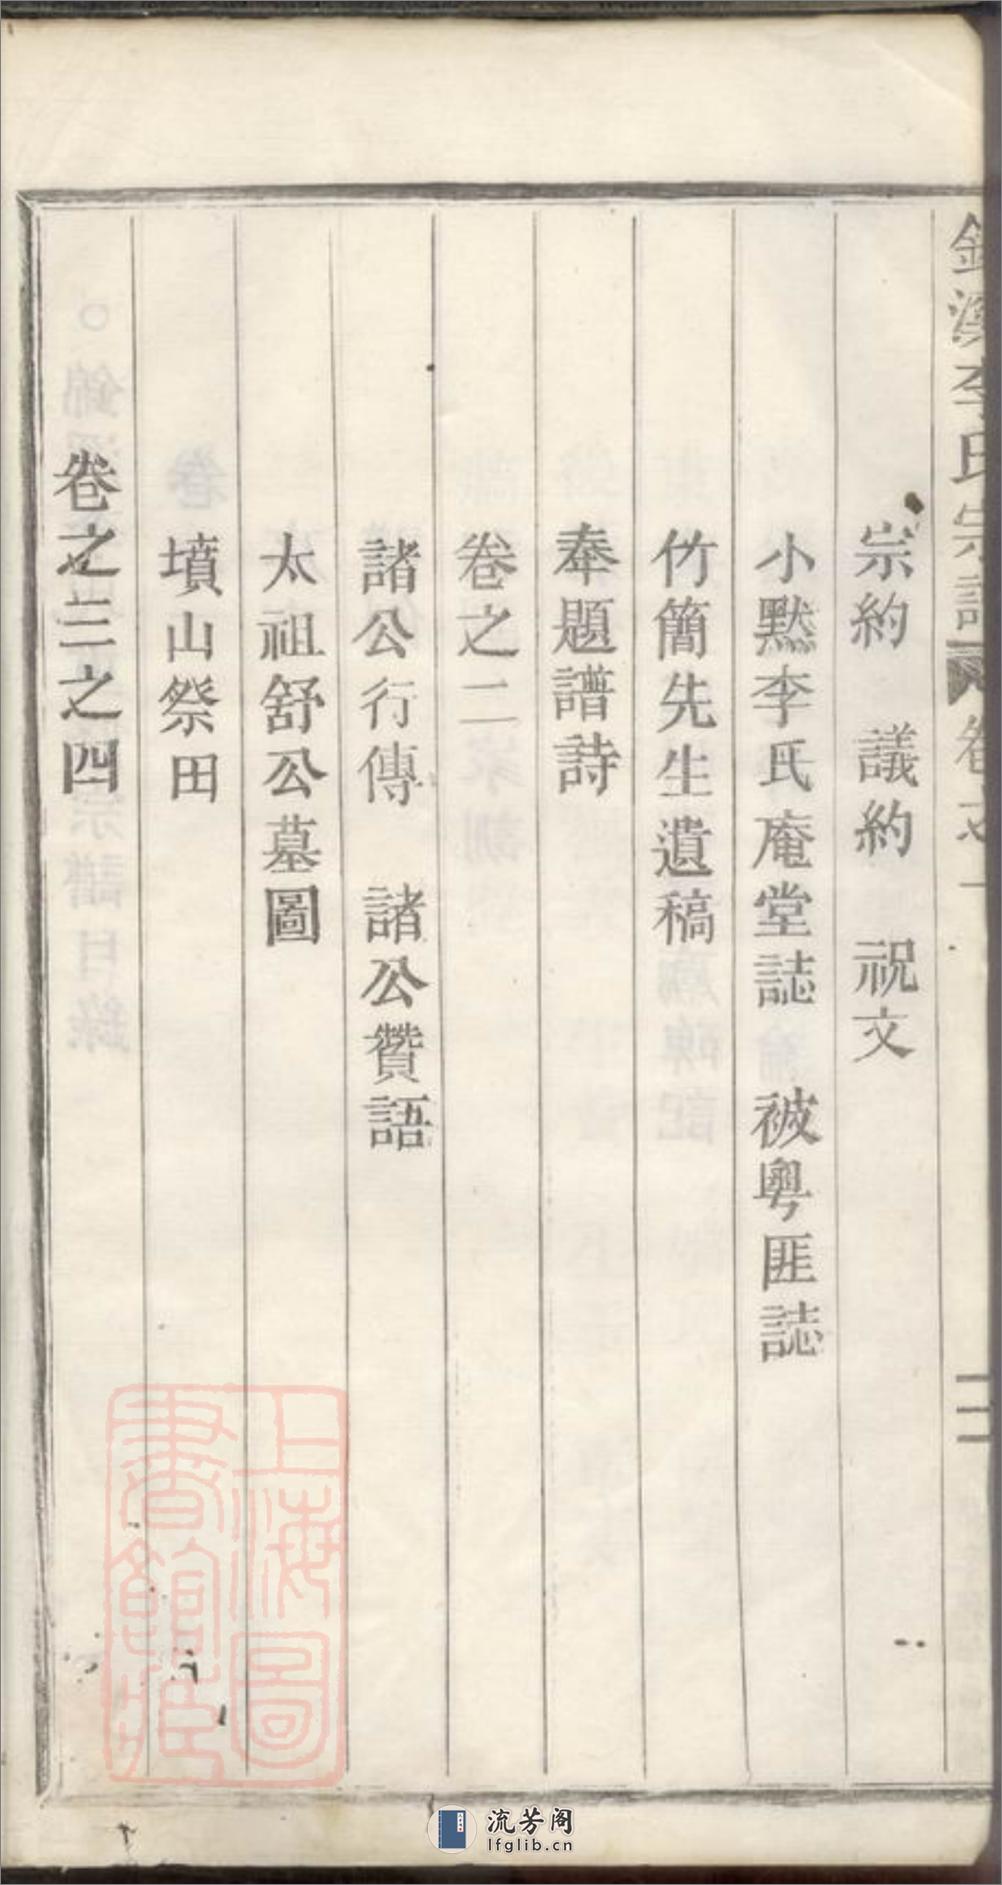 錦溪李氏宗譜 卷之一 二
宗約 議約 祝文
小黙李氏庵堂誌 被粵匪誌
竹簡先生遺稿
奉題譜詩
卷之二
諸公行傳 諸公贊語
太祖舒公墓圖
墳山祭田
卷之三之四
上海圖書館藏
流芳阁
lfglib.cn